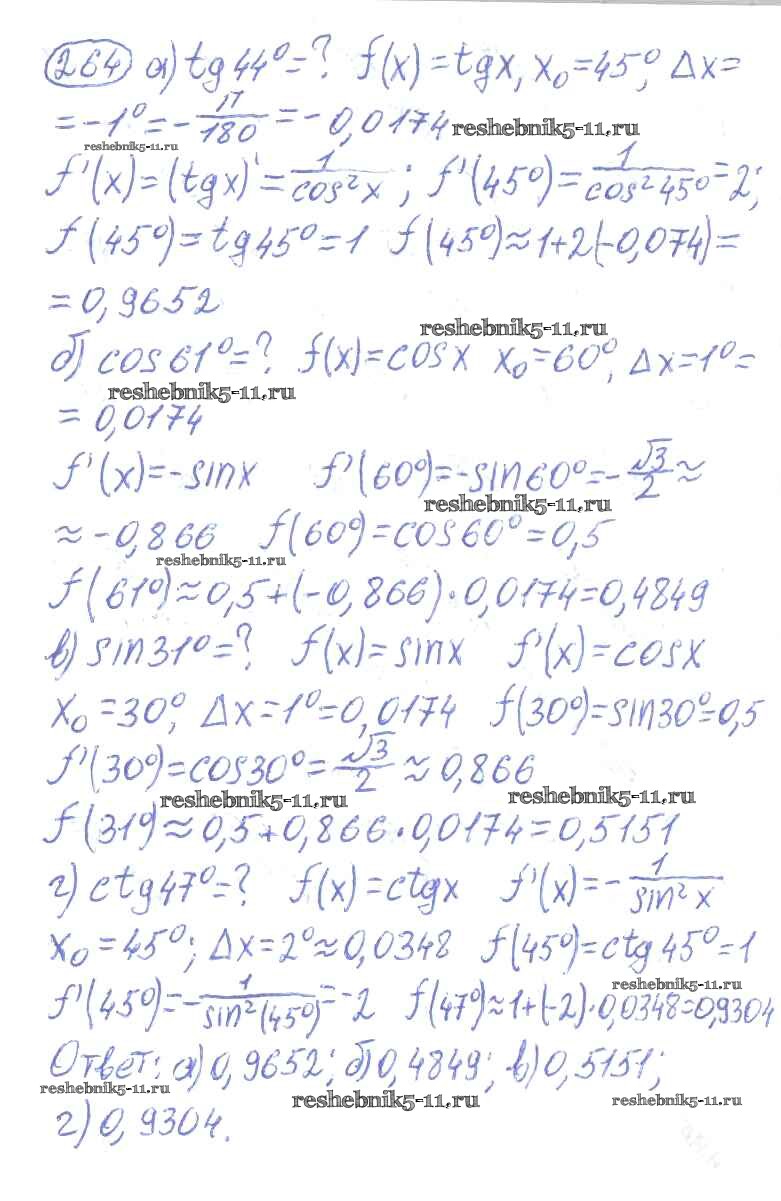 264 а) tg 44° = ? f(x) = tg x, x₀ = 45°, Δx =
= -1° = -π/180 = -0,0174 reshebnik5-11.ru
reshebnik5-11.ru
f'(x) = (tg x)' = 1/cos²x ; f'(45°) = 1/cos²45° = 2;
f(45°) = tg 45° = 1 f(45°) ≈ 1+2(-0,074) =
= 0,9652
reshebnik5-11.ru
б) cos 61° = ? f(x) = cos x x₀ = 60°, Δx = 1° =
reshebnik5-11.ru
= 0,0174
f'(x) = -sin x f'(60°) = -sin 60° = -√3/2 ≈
reshebnik5-11.ru
≈ -0,866 f(60°) = cos 60° = 0,5
reshebnik5-11.ru
f(61°) ≈ 0,5 + (-0,866) · 0,0174 = 0,4849
в) sin 31° = ? f(x) = sin x f'(x) = cos x
x₀ = 30°, Δx = 1° = 0,0174 f(30°) = sin 30° = 0,5
f'(30°) = cos 30° = √3/2 ≈ 0,866
reshebnik5-11.ru reshebnik5-11.ru
f(31°) ≈ 0,5 + 0,866 · 0,0174 = 0,5151
г) ctg 47° = ? f(x) = ctg x f'(x) = -1/sin²x
x₀ = 45°; Δx = 2° ≈ 0,0348 f(45°) = ctg 45° = 1
reshebnik5-11.ru
f'(45°) = -1/sin²(45°) = -2 f(47°) ≈ 1+(-2) · 0,0348 = 0,9304
Ответ: а) 0,9652; б) 0,4849; в) 0,5151;
reshebnik5-11.ru reshebnik5-11.ru reshebnik5-11.ru
г) 0,9304.